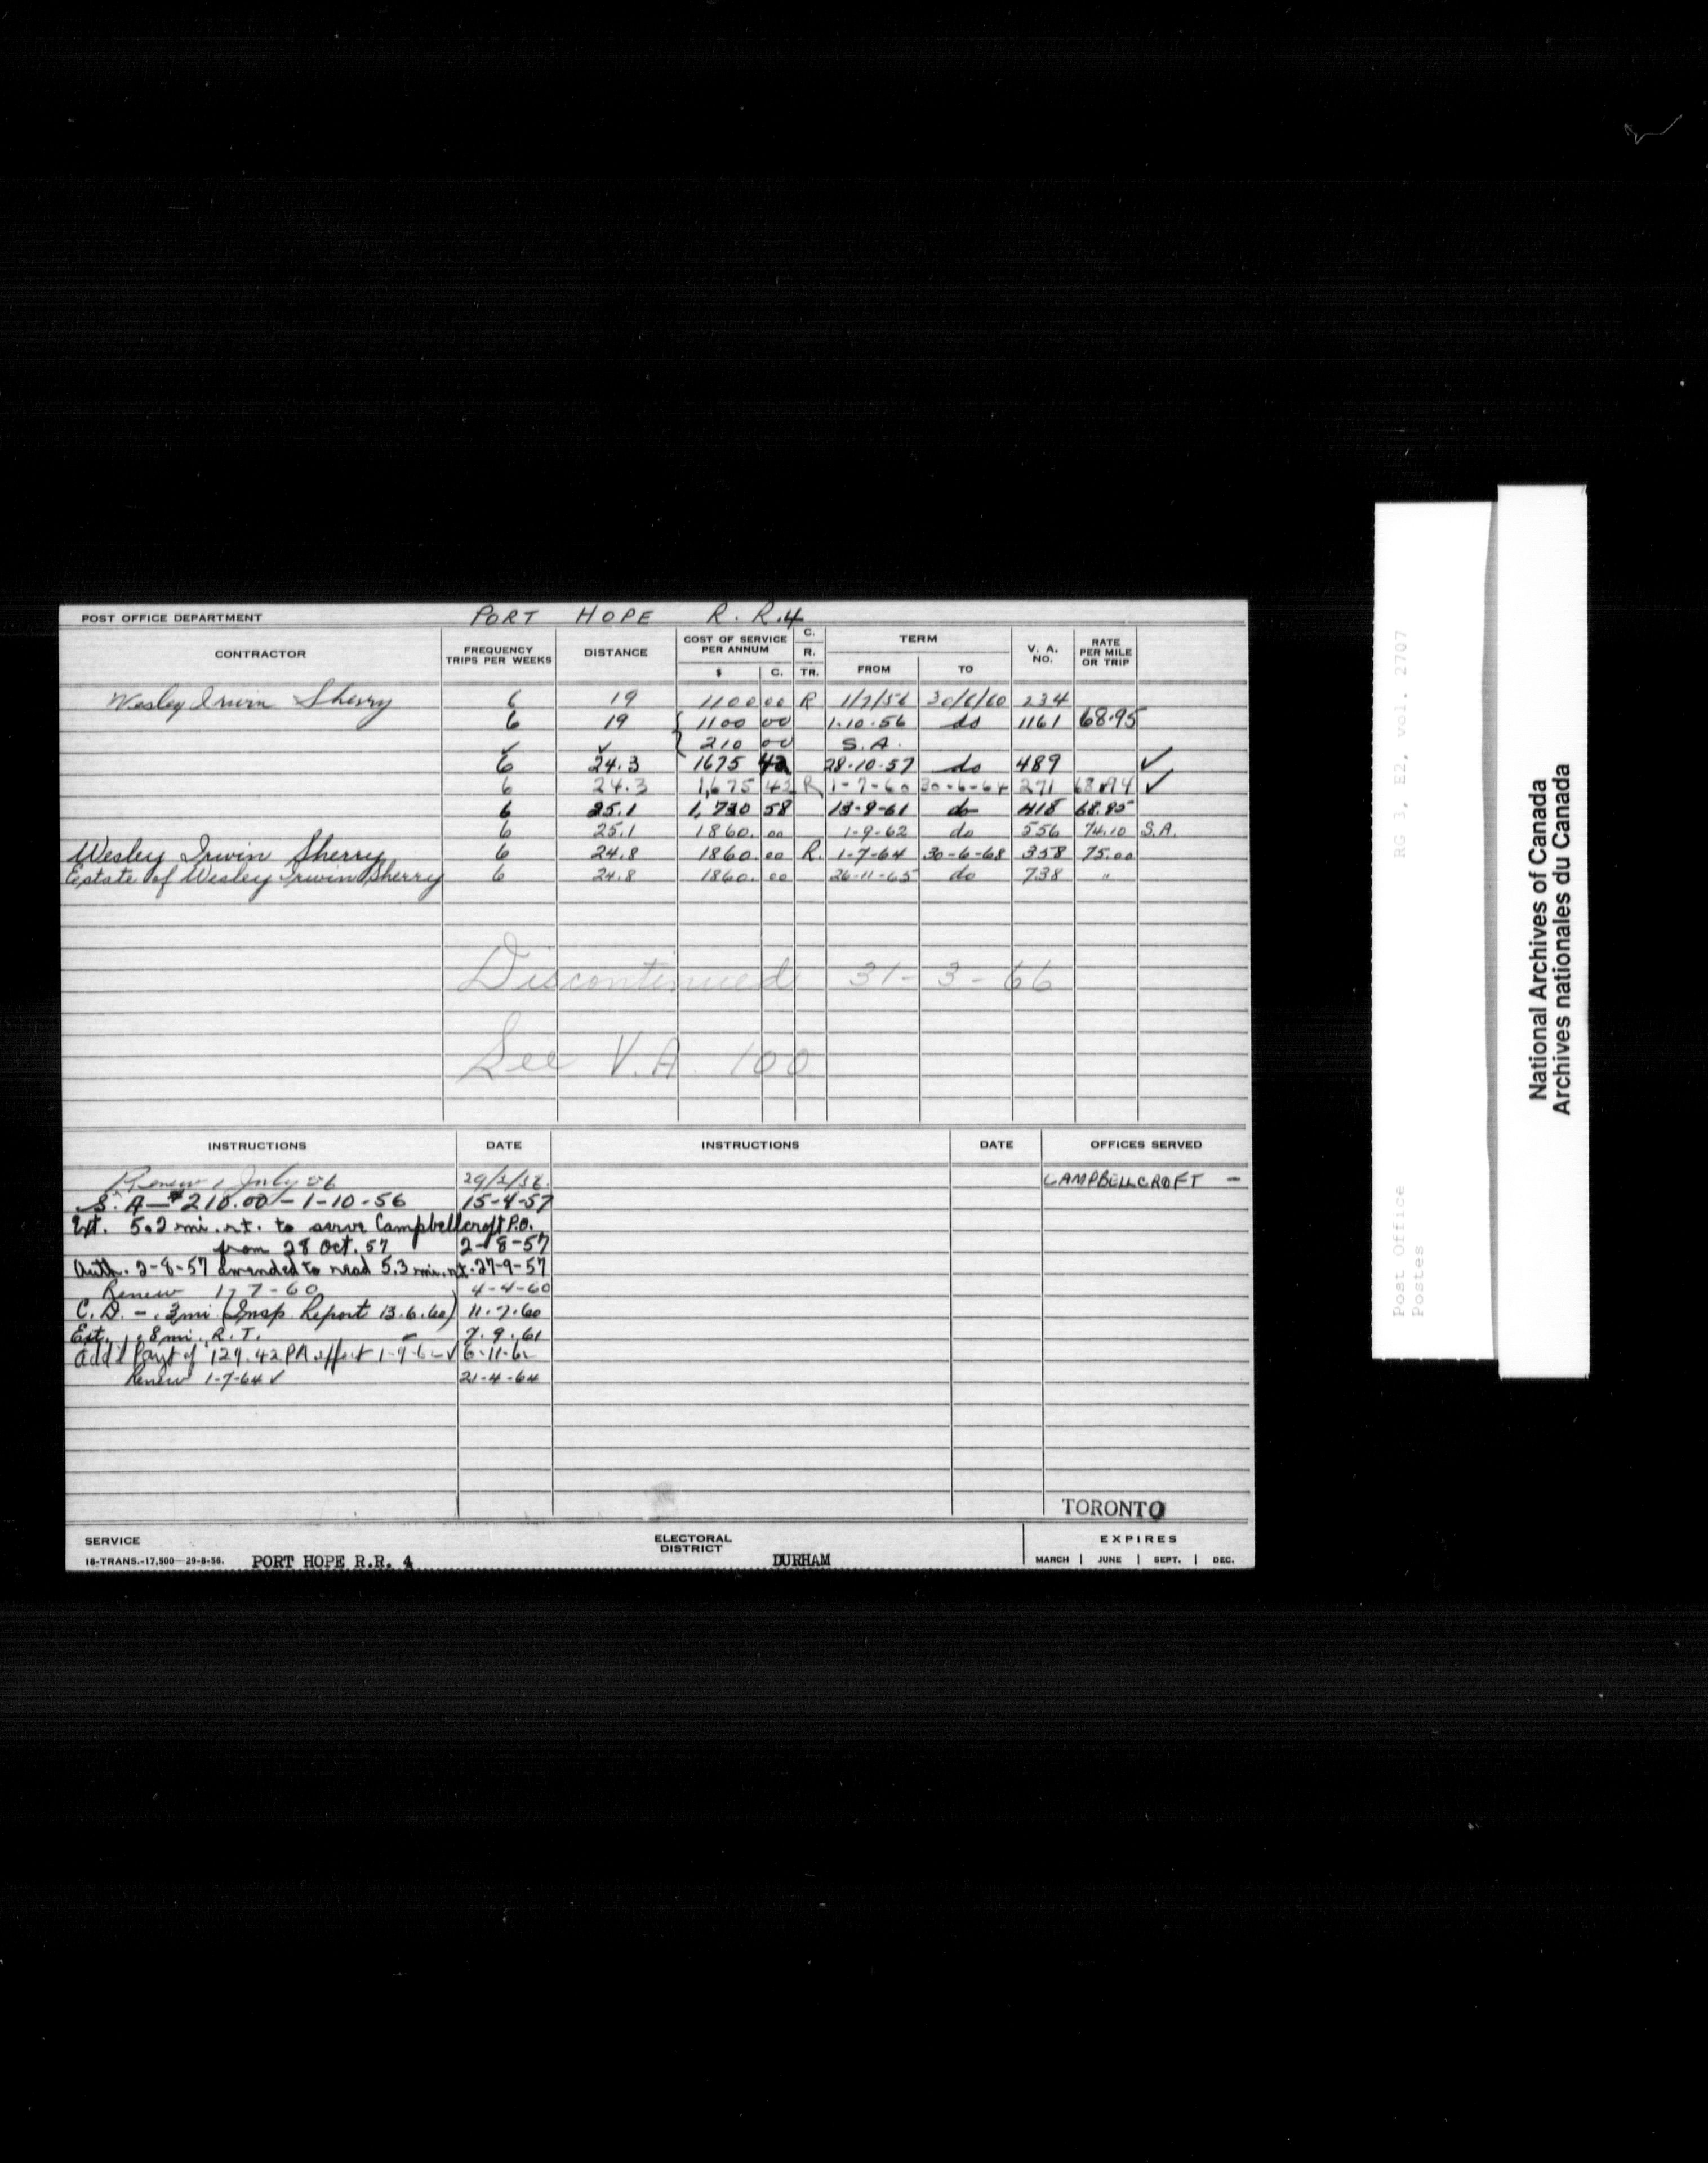 POST OFFICE DEPARTMENT PORT HOPE R. R. 4
CONTRACTOR FREQUENCY TRIPS PER WEEKS DISTANCE COST OF SERVICE PER ANNUM $ C. C. R. TR. TERM FROM TO V. A. NO. RATE PER MILE OR TRIP
Wesley Irwin Sherry 6 19 1100 00 R 1/7/56 30/6/60 234
6 19 1100 00 1-10-56 do 1161 68.95
✓ ✓ 210 00 S.A.
6 24.3 1675 42 28-10-57 do 489 ✓
6 24.3 1,675 42 R 1-7-60 30-6-64 271 ✓
6 25.1 1,730 58 do 418 68.95
6 25.1 1860. 00 1-9-62 do 556 74.10 S.A.
Wesley Irwin Sherry 6 24.8 1860. 00 R. 1-7-64 30-6-68 358 75.00
Estate of Wesley Irwin Sherry 6 24.8 1860. 00 26-11-65 do 738 "
Discontinued 31-3-66
See V.A. 100
INSTRUCTIONS DATE INSTRUCTIONS DATE OFFICES SERVED
Renew 1 July 56 CAMPBELLCROFT -
S. A - $210.00 - 1-10-56 15-4-57
Ext. 5.2 mi. r.t. to serve Campbellcroft P.O.
from 28 Oct. 57 2-8-57
Auth. 2-8-57 amended to read 5.3 mi. r.t. 27-9-57
Renew 1-7-60 4-4-60
C. D. - .3mi (Insp. Report 13.6.60) 11.7.60
Ext. .8 mi. R.T. 7.9.61
Add'l Payt of 129.42 PA effect 1-9-62 ✓ 6-11-62
Renew 1-7-64 ✓ 21-4-64
TORONTO
SERVICE ELECTORAL DISTRICT EXPIRES
18-TRANS.-17,500-29-8-56. PORT HOPE R.R. 4 DURHAM MARCH | JUNE | SEPT. | DEC.
RG 3, E2, vol. 2707
Post Office
Postes
National Archives of Canada
Archives nationales du Canada